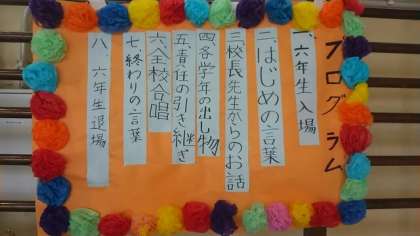 プログラム
一、六年生入場
二、はじめの言葉
三、校長先生からのお話
四、各学年の出し物
五、責任の引き継ぎ
六、全校合唱
七、終わりの言葉
八、六年生退場